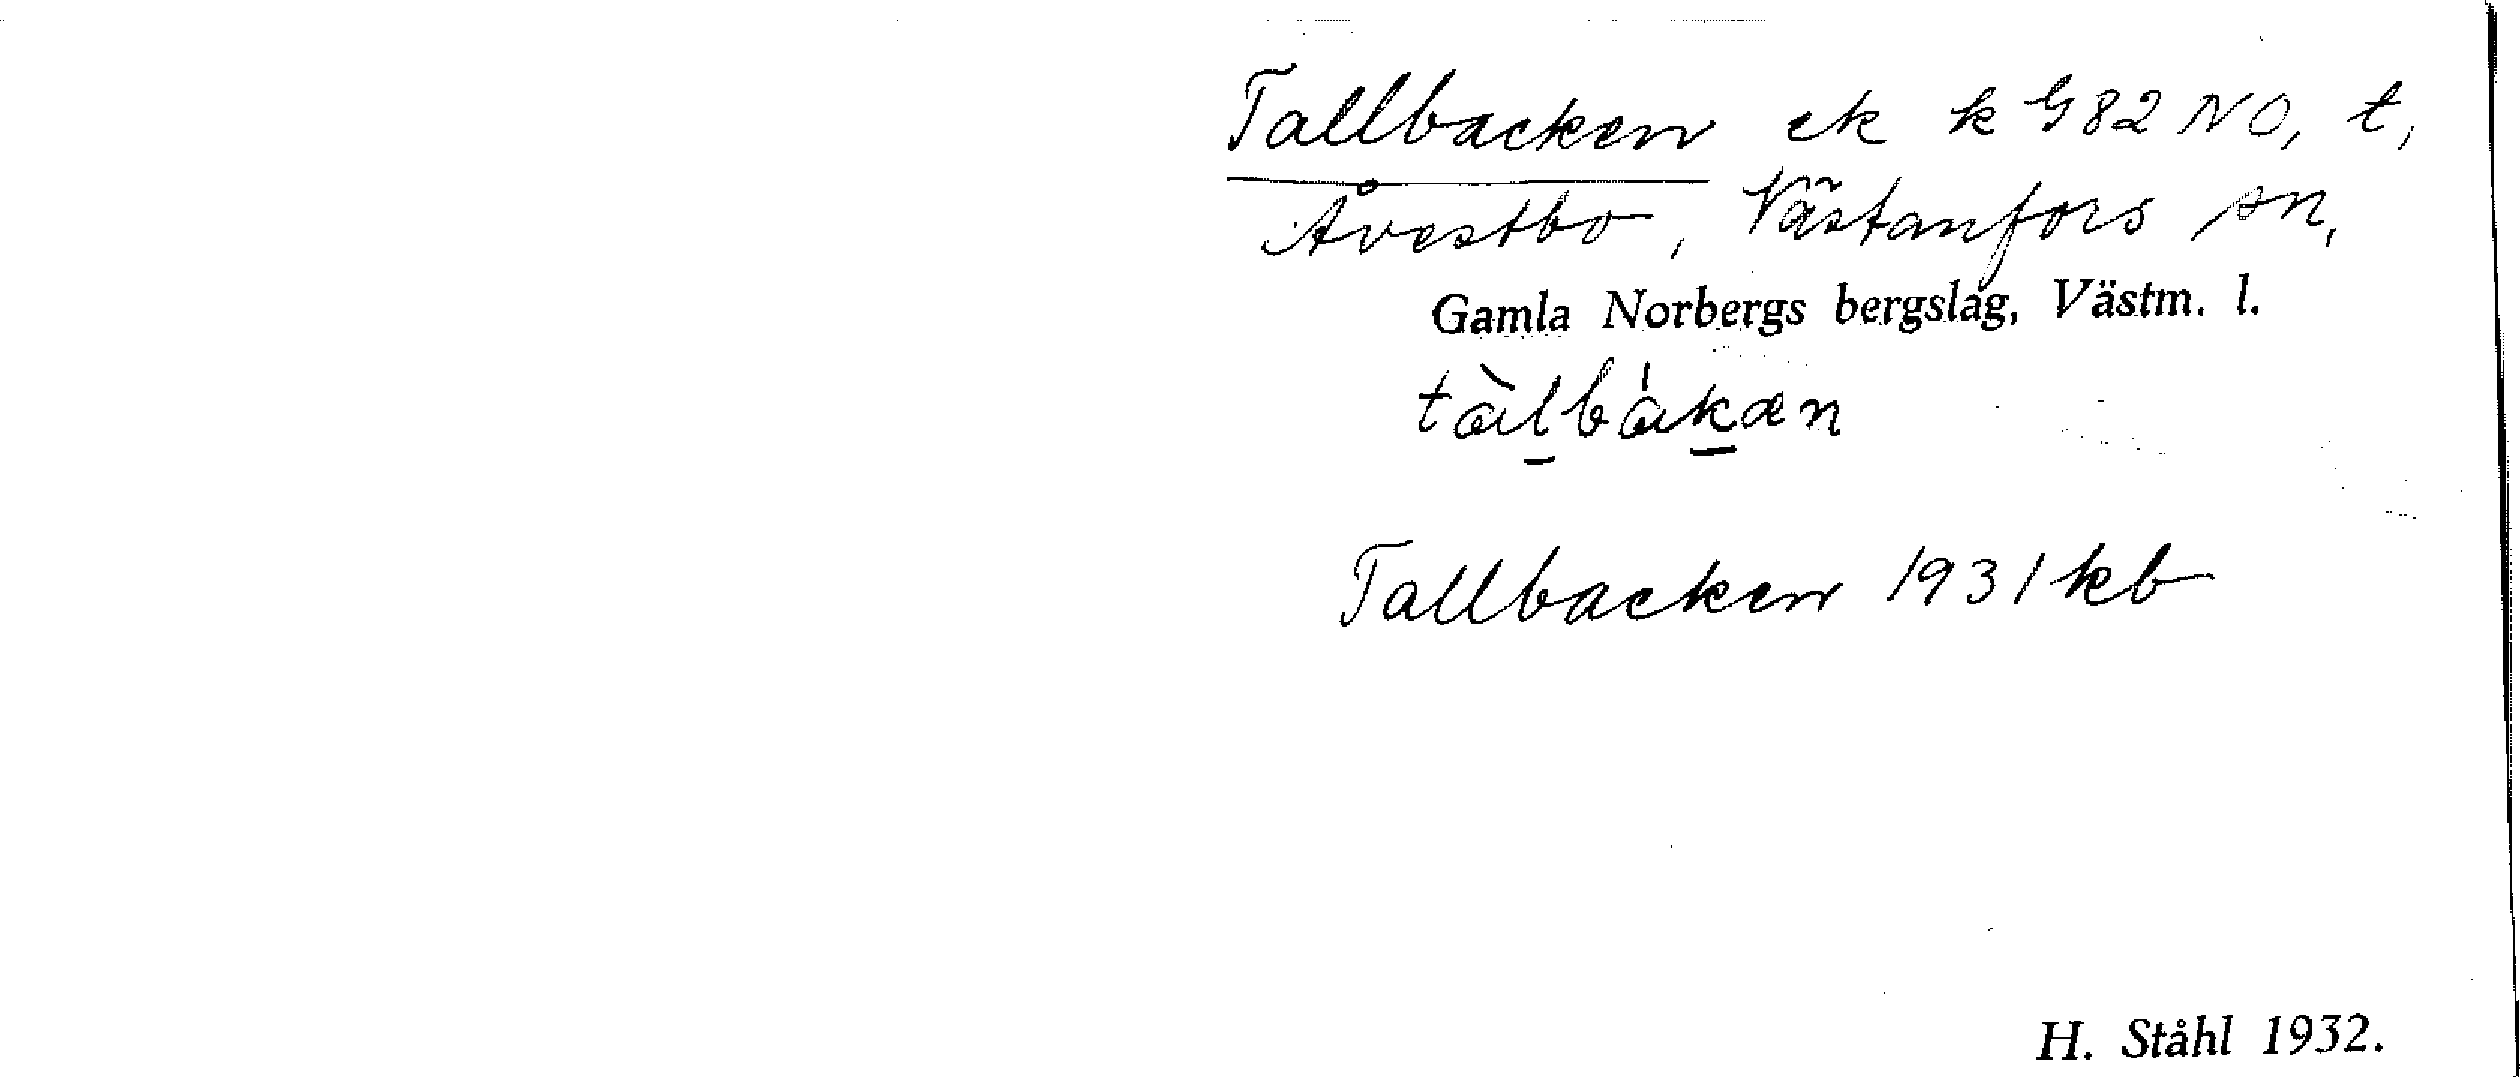 Tallbacken ek k G82 NO, t,
Åvestbo, Västanfors sn,
Gamla Norbergs bergslag, Västm. l.
tàl̠bák̠æn
Tallbacken 1931 kb
H. Ståhl 1932.